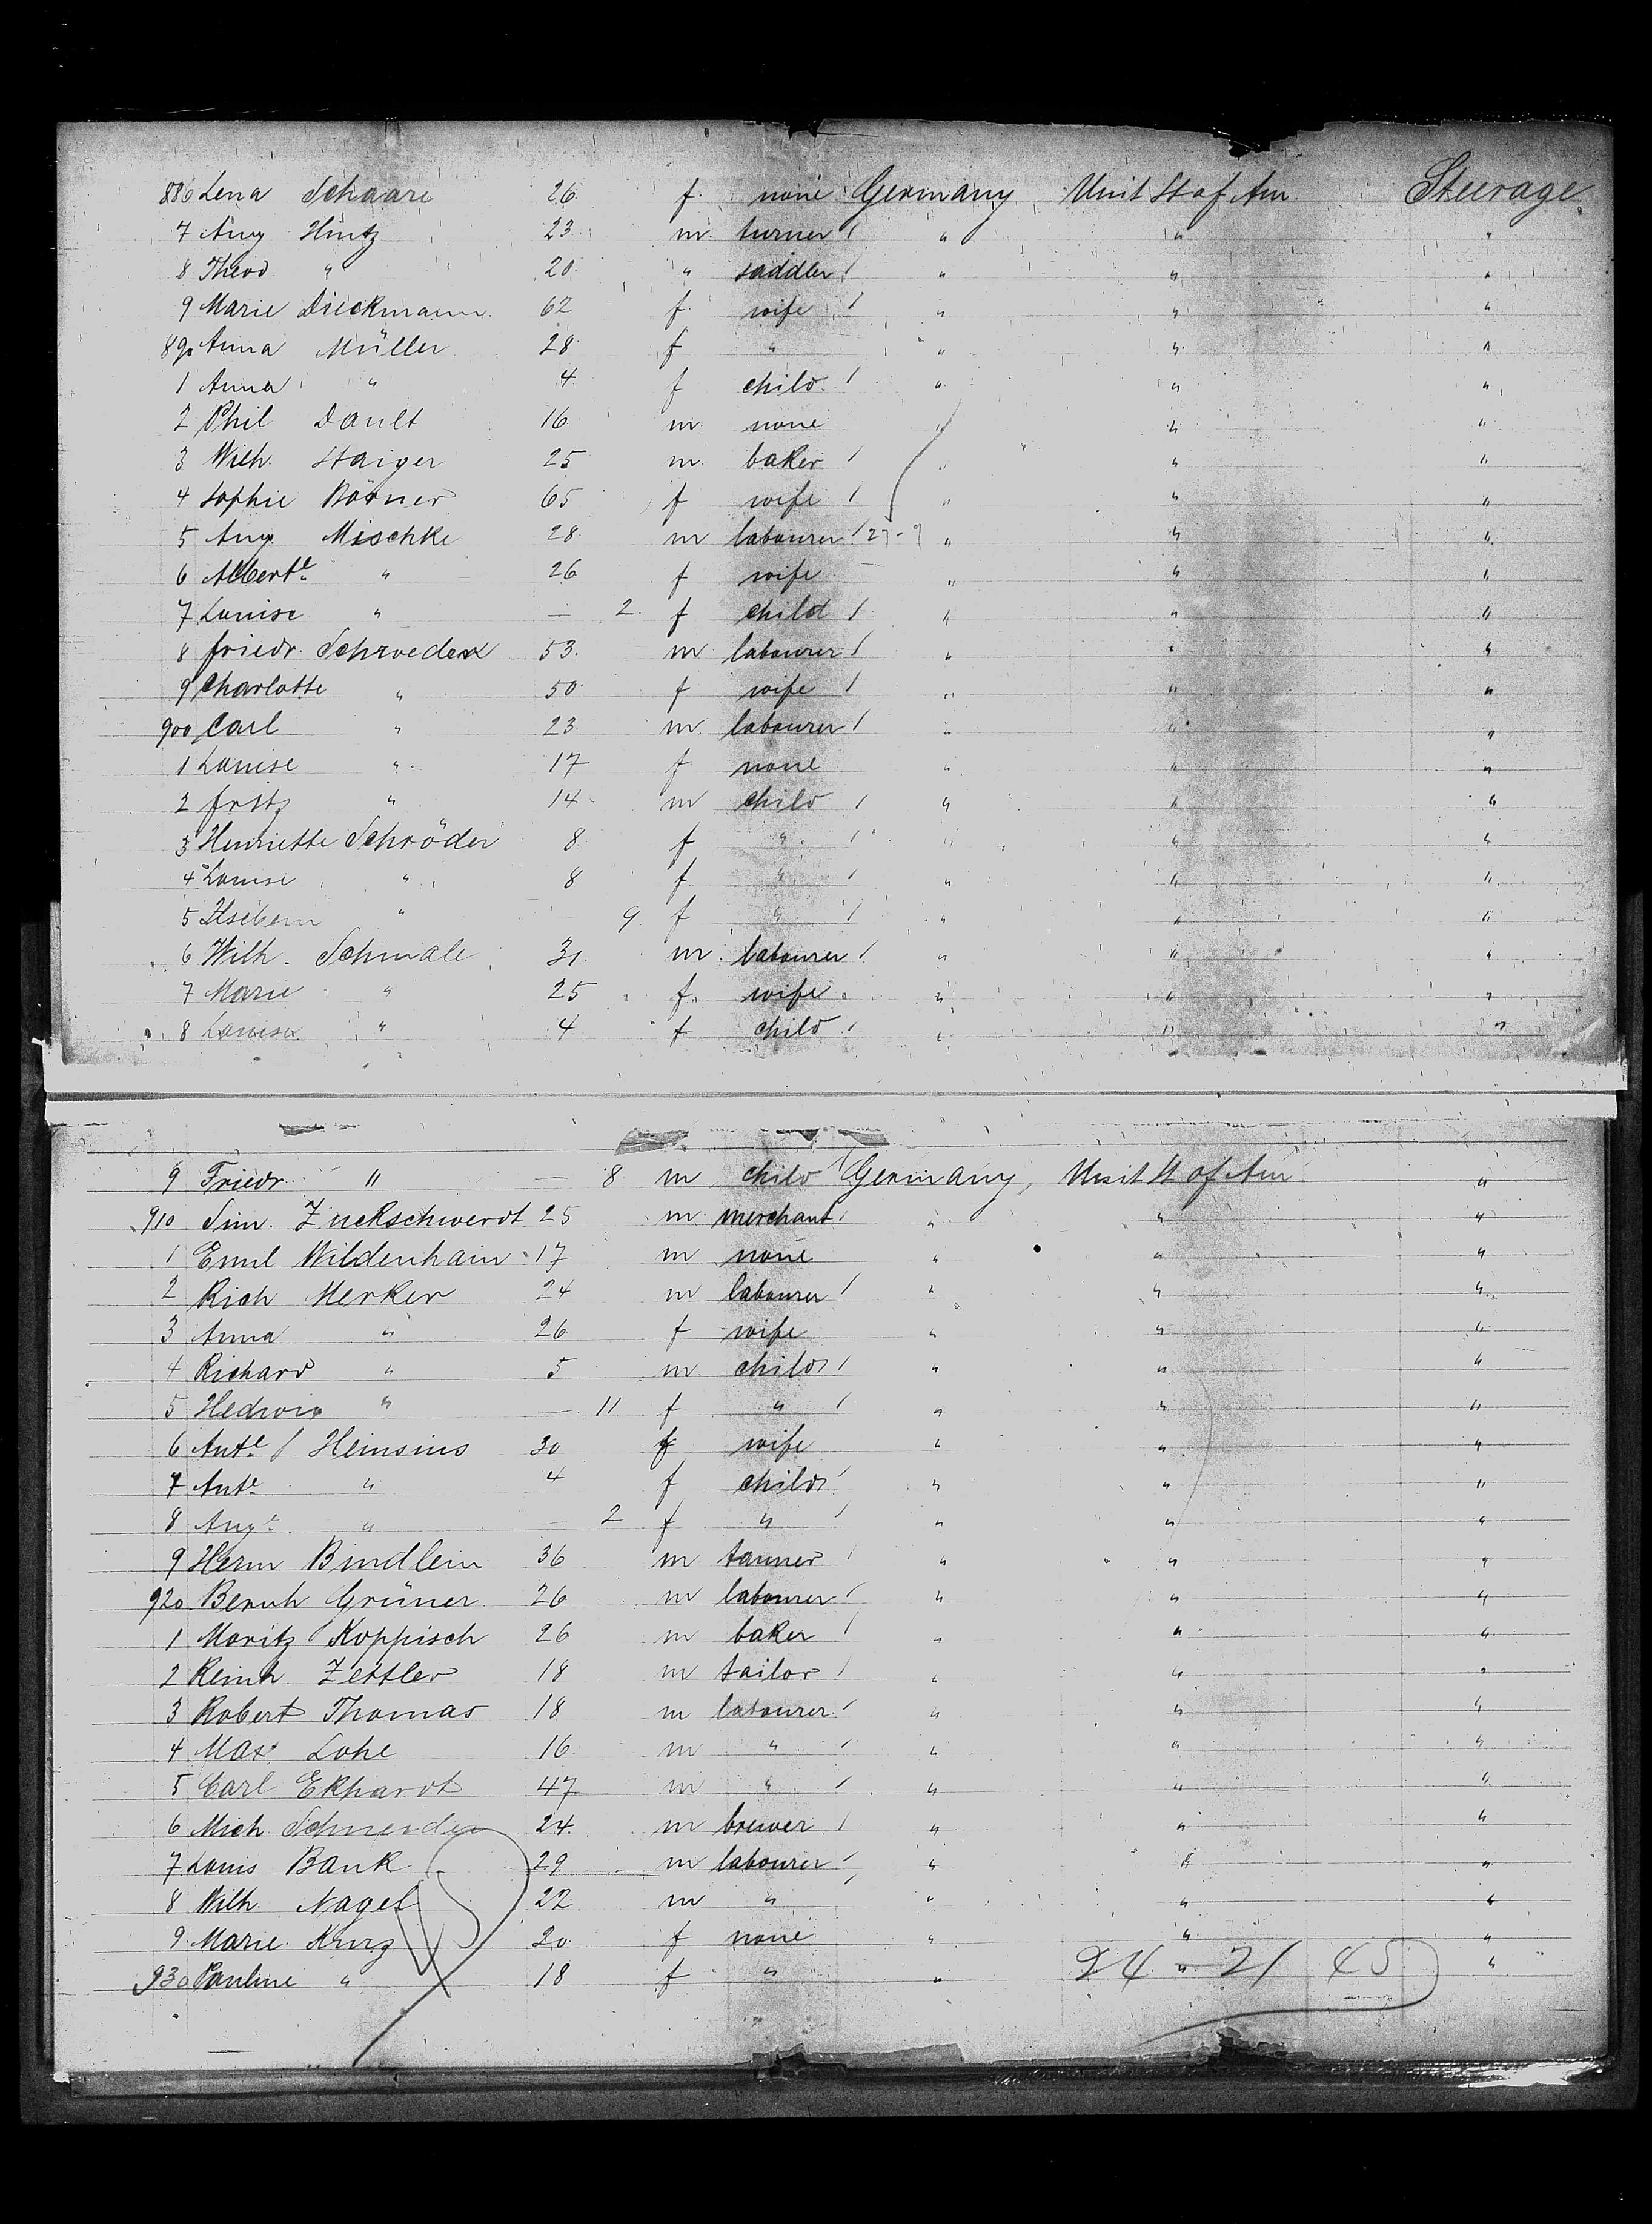 886 Lena Schaare 26 f. none Germany Unit St of Am. Steerage
7 Aug Hintz 23 m. turner / " " "
8 Theod " 20 " saddler / " " "
9 Marie Dieckmann 62 f wife / " " "
890 Anna Müller 28 f " " " "
1 Anna " 4 f child / " " "
2 Phil Dault 16 m. none " " "
3 Wilh. Staiger 25 m. baker / " " "
4 Sophie Börner 65 f wife / " " "
5 Aug. Mischke 28 m labourer / 27-9 " " "
6 Albert.e " 26 f wife " " "
7 Louise " — 2 f child / " " "
8 Friedr. Schroeder 53. m labourer / " " "
9 Charlotte " 50 f wife / " " "
900 Carl " 23 m. labourer / " " "
1 Louise " 17 f none " " "
2 Fritz " 14 m child / " " "
3 Henriette Schröder 8 f " / " " "
4 Louise " 8 f " / " " "
5 " 9 f " / " " "
6 Wilh. Schmale 31. m. labourer / " " "
7 Marie " 25 f. wife " " "
8 Louise " 4 f child / " " "
9 Friedr. " — 8 m child / Germany, Unit St of Am "
910 Sim. Zuckschwerdt 25 m. merchant / " " "
1 Emil Wildenhain 17 m none " " "
2 Rich Merker 24 m labourer / " " "
3 Anna " 26 f wife " " "
4 Richard " 5 m child / " " "
5 Hedwig " — 11 f " / " " "
6 Ant.e Heinsius 30 f wife " " "
7 Ant.e " 4 f child / " " "
8 Aug.e " — 2 f " / " " "
9 Herm Bindlein 36 m tanner / " " "
920 Bernh Grüner 26 m labourer / " " "
1 Moritz Koppisch 26 m baker / " " "
2 Reinh. Zettler 18 m tailor / " " "
3 Robert Thomas 18 m labourer / " " "
4 Max Lohe 16 m " / " " "
5 Carl Ekhardt 47 m " / " " "
6 Mich. Schneider 24. m brewer / " " "
7 Louis Bank 29 m labourer / " " "
8 Wilh. Nagel 22 m " / " " "
9 Marie Kurz 20 f none " " "
930 Pauline " 18 f " " " "
24 - 21 45